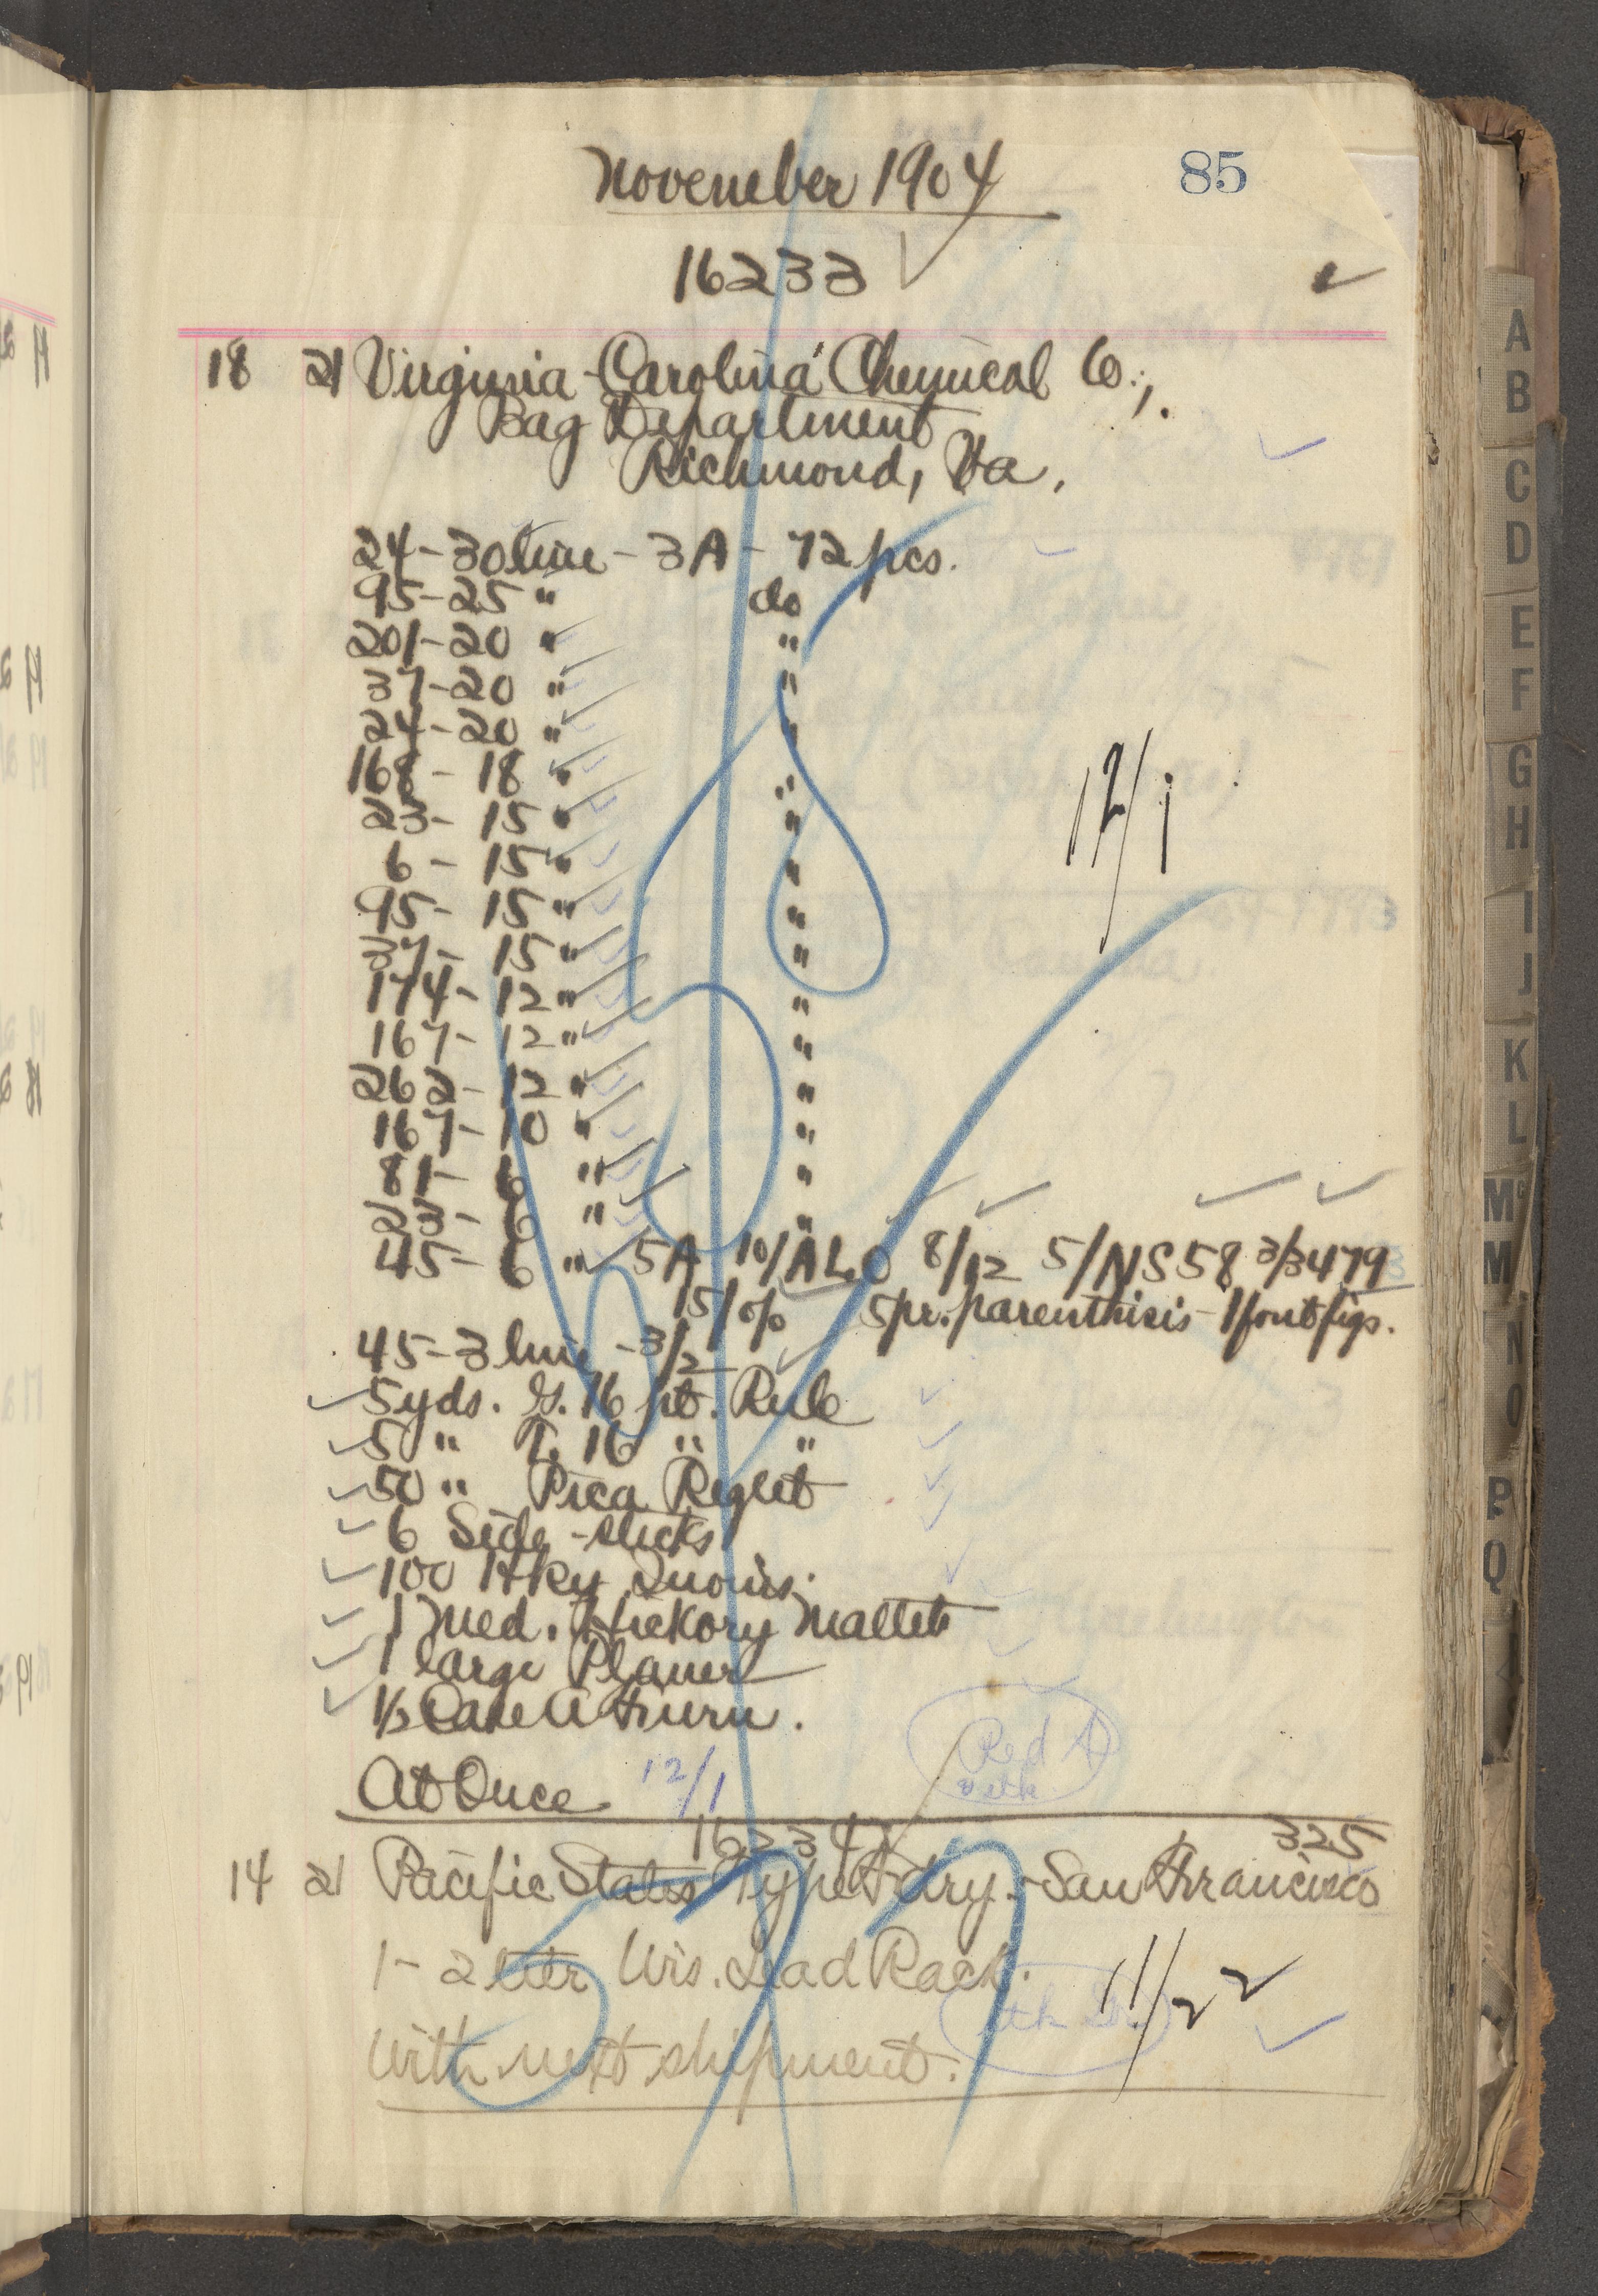 85
November 1904
16233
18 21 Virginia-Carolina Chemical Co.,
Bag Department
Richmond, Va.
24-30 line - 3A - 72 pcs.
95-25 " do
201-20 " "
37-20 " "
24-20 " "
168-18 " "
23-15 " "
6-15 " "
95-15 " "
37-15 " "
174-12 " "
167-12 " "
262-12 " "
167-10 " "
81-6 " "
23-6 " "
45-6 " 5A 10/A L O 8/12 5/N S 58 3/3479
5/% 5 pr. parenthisis - 1 font figs.
45-3 line - 3/2
5 yds. G. 16 pt. Rule
5 " T. 16 " "
50 " Pica Reglet
6 Side-sticks
100 Hky Quoins.
1 Med. Hickory Mallet
1 large Planer
1/2 Case
At Once 12/1
12/1
Red
16234
325
14 21 Pacific States Type Fdry. - San Francisco
1-2 tier Wis. Lead Rack.
With next shipment.
11/22
A
B
C
D
E
F
G
H
I
J
K
L
Mc
M
N
O
P
Q